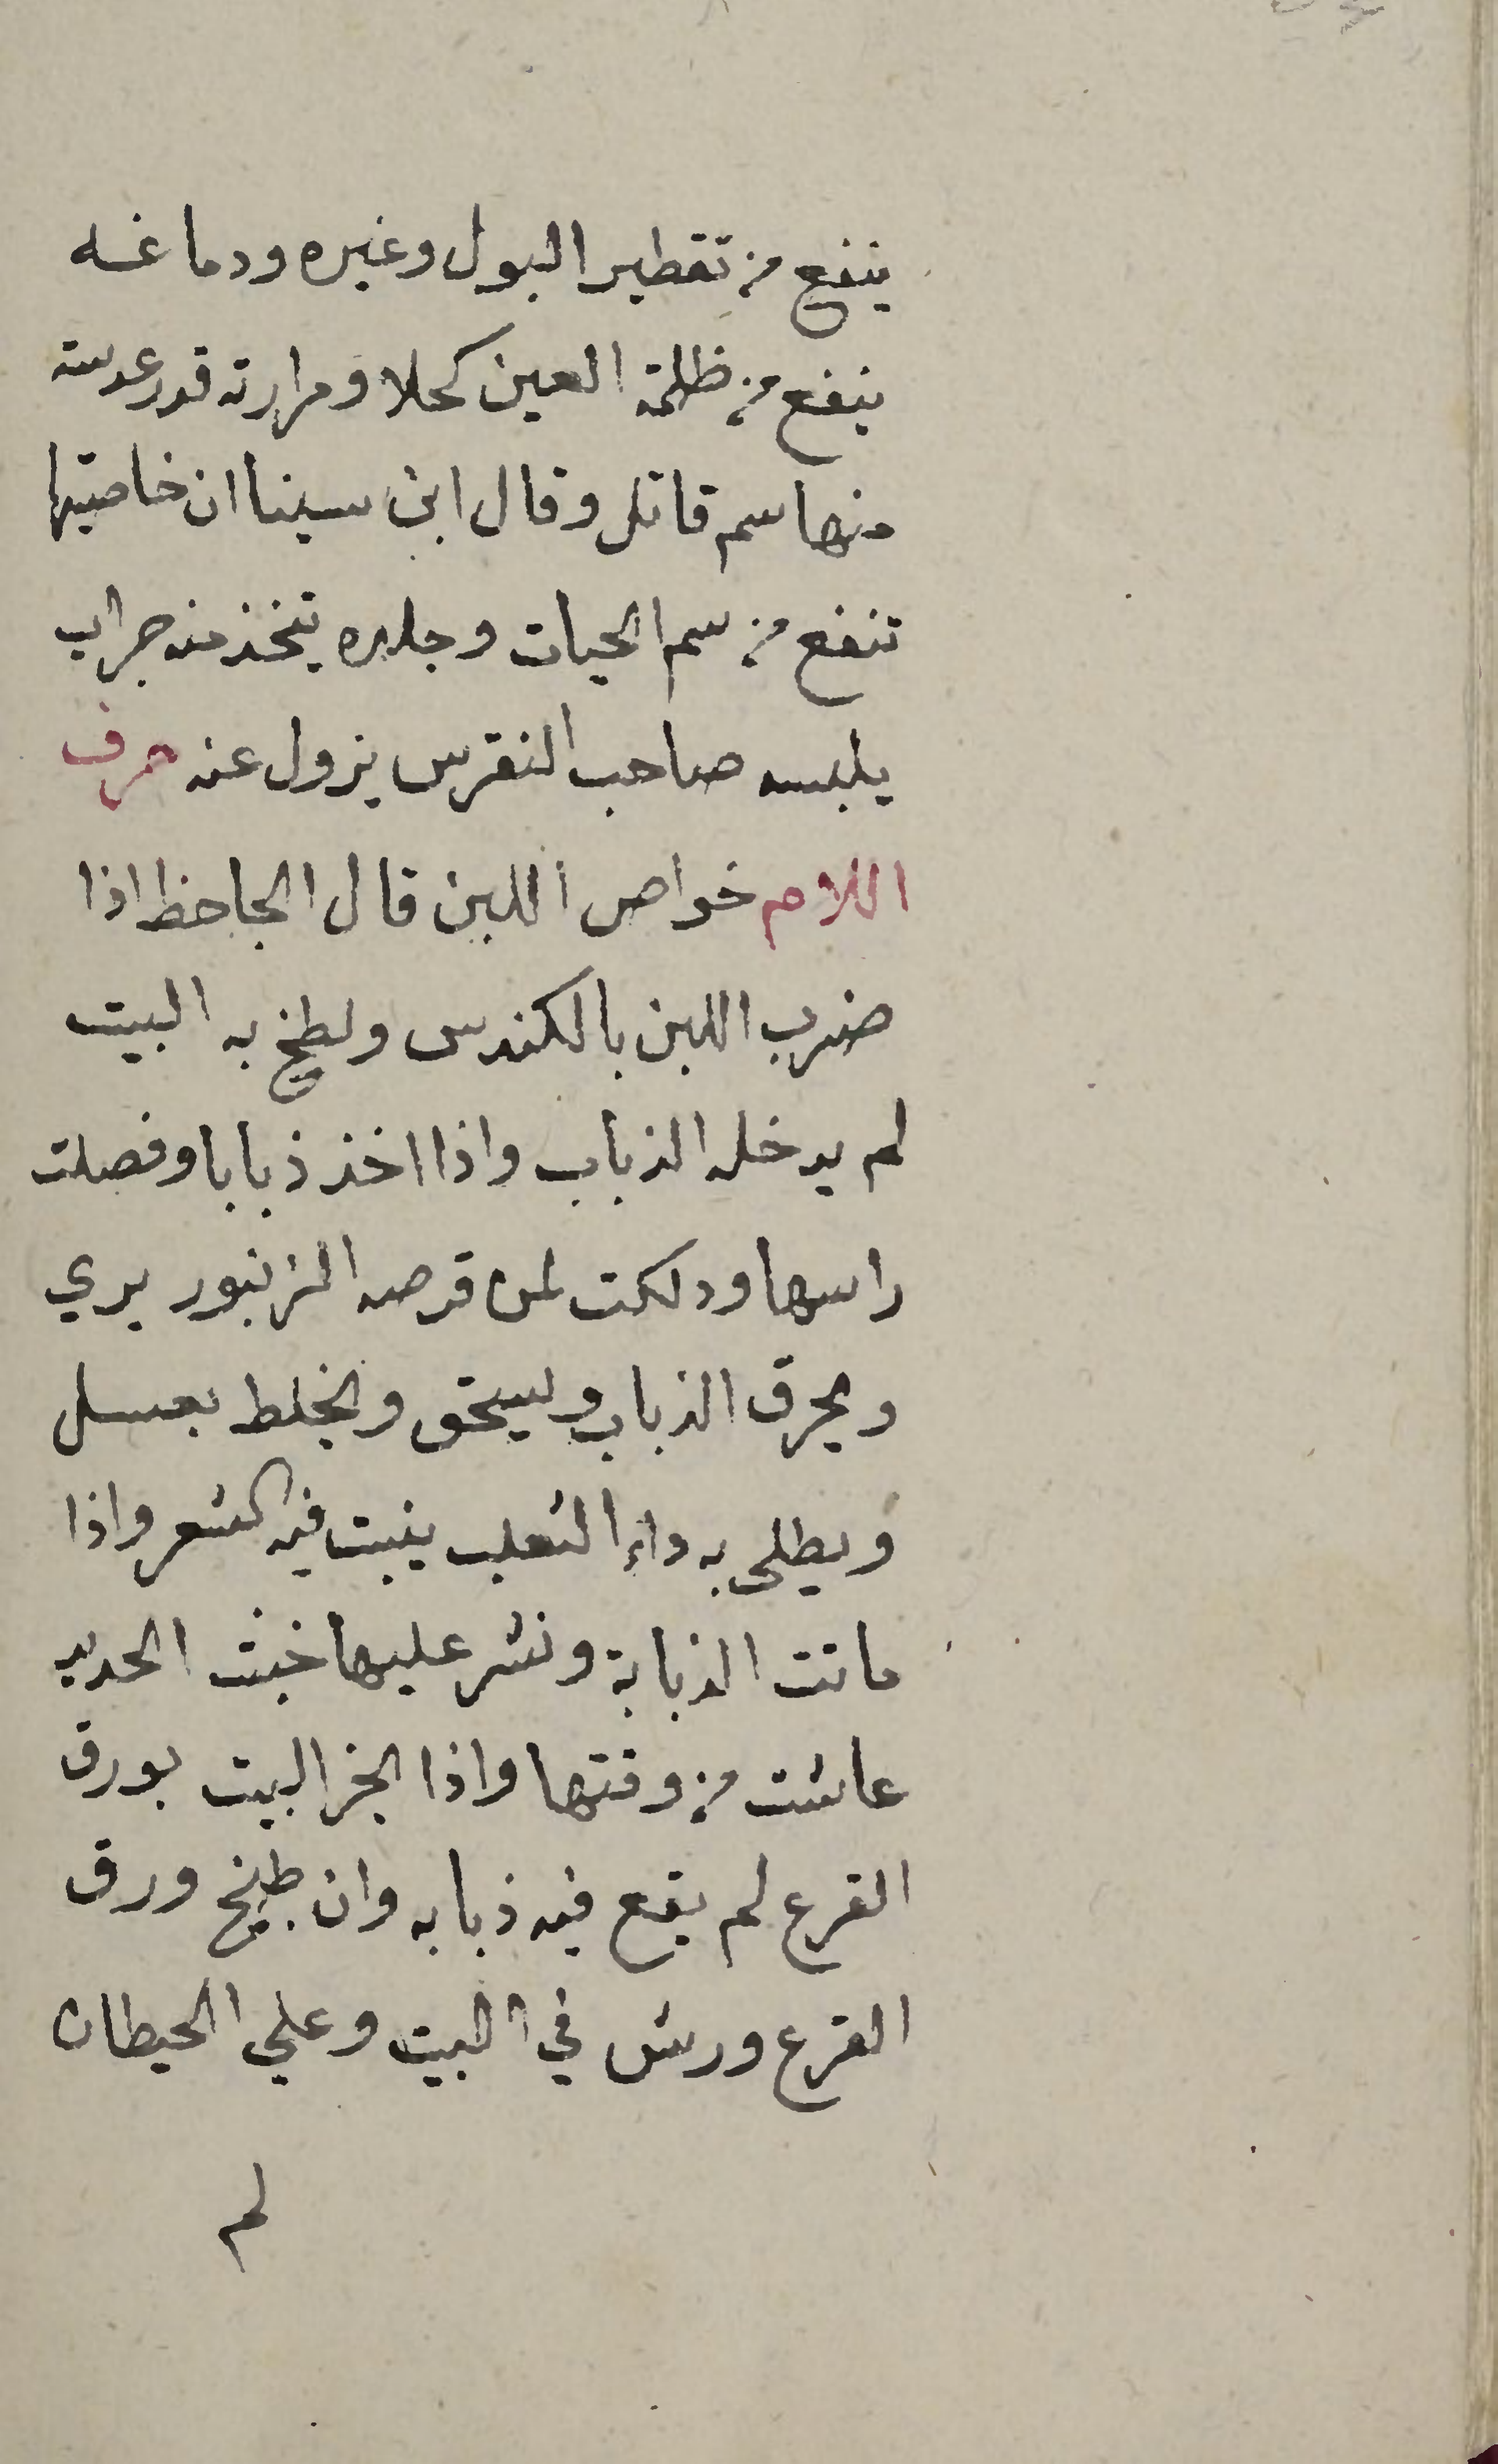 ينفع من تقطير البول وغيره ودماغه
ينفع من ظلمة العين كحلا ومرارته قدر عدسة
منها سم قاتل وقال ابن سينا ان خاصيتها
تنفع من سم الحيات وجلده يتخذ منه جراب
يلبسه صاحب النقرس يزول عنه حرف
اللام خواص اللبن قال الجاحظ اذا
ضرب اللبن بالكندس ولطخ به البيت
لم يدخله الذباب واذا اخذ ذبابا وفصلت
راسها ودلكت لمن قرصه الزنبور يبري
ويحرق الذباب ويسحق ويخلط بعسل
ويطلى به داء الثعلب ينبت فيه الشعر واذا
ماتت الذبابة ونثر عليها خبث الحديد
عاشت من وقتها واذا بخر البيت بورق
القرع لم يقع فيه ذبابه وان طبخ ورق
القرع ورش في البيت وعلي الحيطان
لم